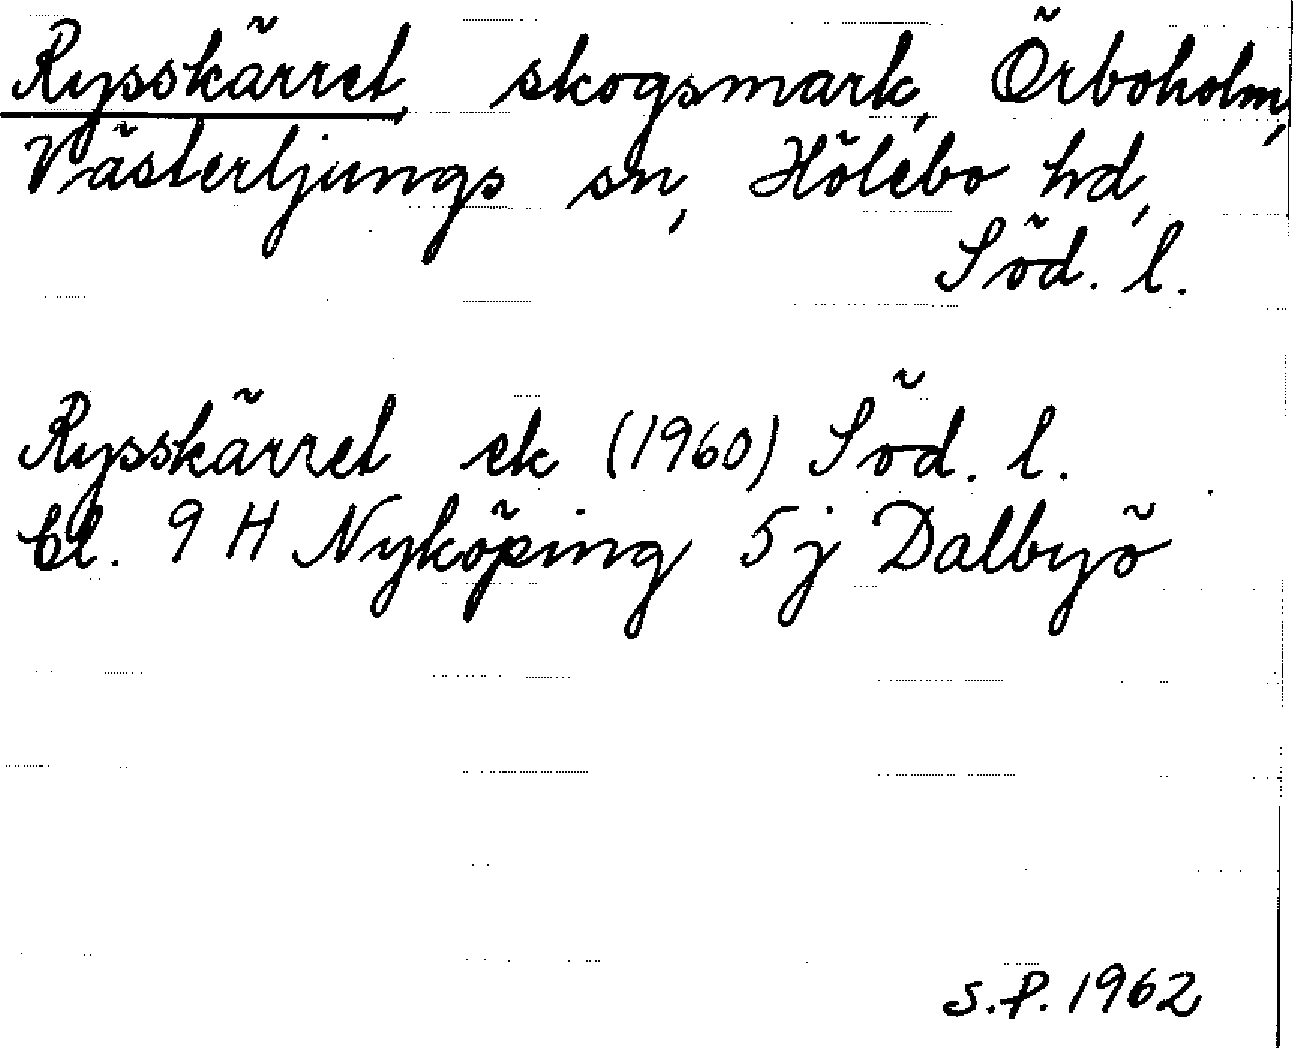 Rysskärret, skogsmark, Örboholm,
Västerljungs sn, Hölebo hd,
Söd. l.
Rysskärret ek (1960) Söd. l.
bl. 9 H Nyköping 5 j Dalbyö
S.P. 1962